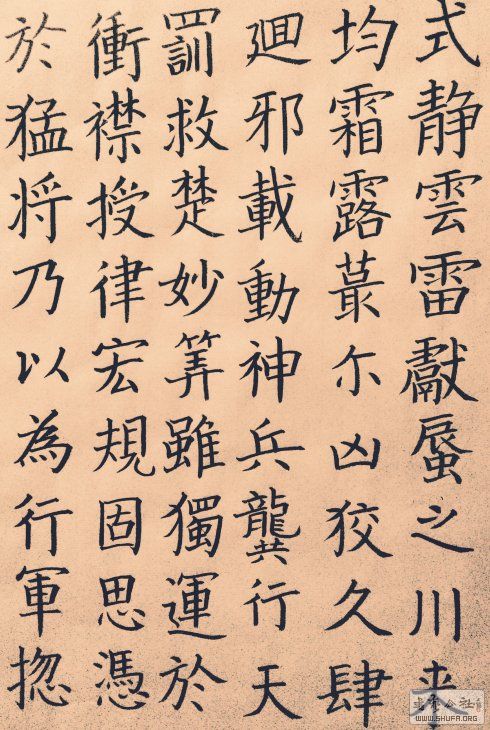 式静雲雷獻蜃之川未
均霜露蕞尓凶狡久肆
廻邪載動神兵龔行天
罰救楚妙筭雖獨運於
衝襟授律宏規固思憑
於猛将乃以為行軍揔
WWW.SHUFA.ORG